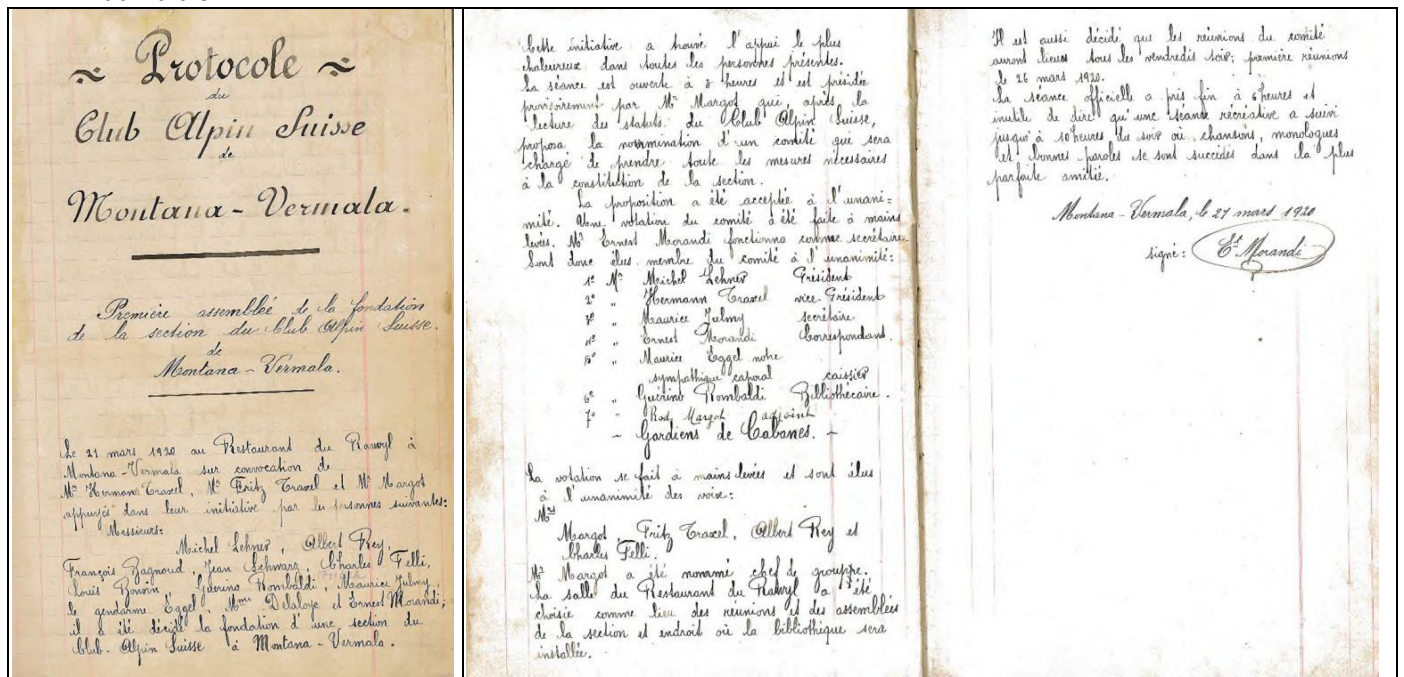 ~ Protocole ~
du
Club Alpin Suisse
de
Montana - Vermala.
Première assemblée de la fondation
de la section du Club Alpin Suisse.
de
Montana - Vermala.
Le 21 mars 1920 au Restaurant du Rawyl à
Montana-Vermala sur convocation de
Mr Hermann Traxel, Mr Fritz Traxel et Mr Margot
appuyés dans leur initiative par les personnes suivantes:
Messieurs:
Michel Lehner, Albert Rey,
François Bagnoud, Jean Schwarz, Charles Felli,
Louis Bonvin, Guérino Rombaldi, Maurice Julmy,
le gendarme Eggel, Mme Delaloye et Ernest Morandi;
il a été décidé la fondation d'une section du
Club-Alpin Suisse à Montana - Vermala.
Cette initiative a trouvé l'appui le plus
chaleureux dans toutes les personnes présentes.
La séance est ouverte à 3 heures et est présidée
provisoirement par Mr Margot qui, après la
lecture des statuts du Club Alpin Suisse,
proposa la nommination d'un comité qui sera
chargé de prendre toute les mesures nécessaires
à la constitution de la section.
La proposition a été acceptée à l'unani=
mité. Une votation du comité a été faite à mains
levées. Mr Ernest Morandi fonctionna comme secrétaire.
Sont donc élus membre du comité à l'unanimité:
1° Mr Michel Lehner Président
2° " Hermann Traxel vice-Président
3° " Maurice Julmy secrétaire
4° " Ernest Morandi Correspondant.
5° " Maurice Eggel notre
sympathique caporal caissier
6° " Guérino Rombaldi Bibliothécaire.
7° " Rod. Margot adjoint
~ Gardiens de Cabanes. ~
La votation se fait à mains levées et sont élus
à l'unanimité des voix:
Mrs
Margot Fritz Traxel, Albert Rey et
Charles Felli.
Mr Margot a été nommé chef de grouppe.
La salle du Restaurant du Rawyl a été
choisie comme lieu des réunions et des assemblées
de la section et endroit où la bibliothèque sera
installée.
Il est aussi décidé que les réunions du comité
auront lieues tous les vendredis soir; première réunions
le 26 mars 1920.
La séance officielle a pris fin à 6 heures et
inutile de dire qu'une séance récréative a suivi
jusqu'à 10 heures du soir où chansons, monologues
et bonnes paroles se sont succédés dans la plus
parfaite amitié.
Montana - Vermala, le 21 mars 1920
signé: Et Morandi